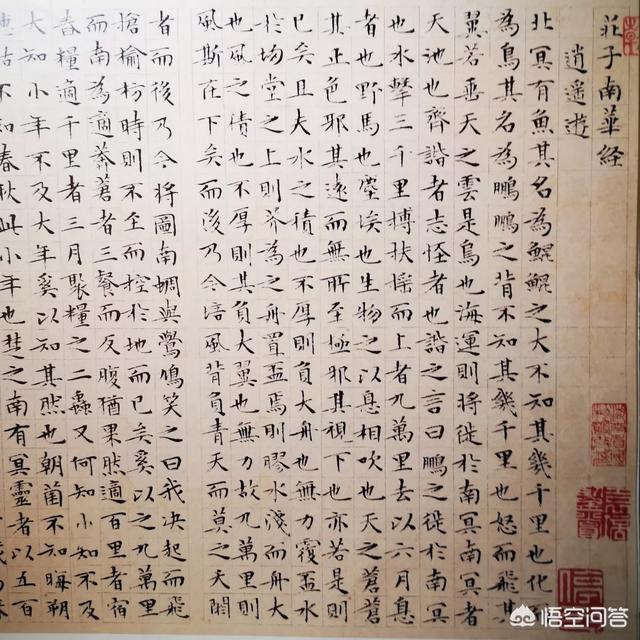 莊子南華経
逍遙遊
北冥有魚其名為鯤鯤之大不知其幾千里也化
為鳥其名為鵬鵬之背不知其幾千里也怒而飛其
翼若垂天之雲是鳥也海運則將徙於南冥南冥者
天池也齊諧者志怪者也諧之言曰鵬之徙於南冥
也水擊三千里摶扶搖而上者九萬里去以六月息
者也野馬也塵埃也生物之以息相吹也天之蒼蒼
其正色邪其遠而無所至極邪其視下也亦若是則
已矣且夫水之積也不厚則負大舟也無力覆盃水
於坳堂之上則芥為之舟置盃焉則膠水淺而舟大
也風之積也不厚則其負大翼也無力故九萬里則
風斯在下矣而後乃今培風背負青天而莫之夭閼
者而後乃今將圖南蜩與鷽鳩笑之曰我決起而飛
搶榆枋時則不至而控於地而已矣奚以之九萬里
而南為適莽蒼者三餐而反腹猶果然適百里者宿
舂糧適千里者三月聚糧之二蟲又何知小知不及
大知小年不及大年奚以知其然也朝菌不知晦朔
蟪蛄不知春秋此小年也楚之南有冥靈者以五百
悟空问答